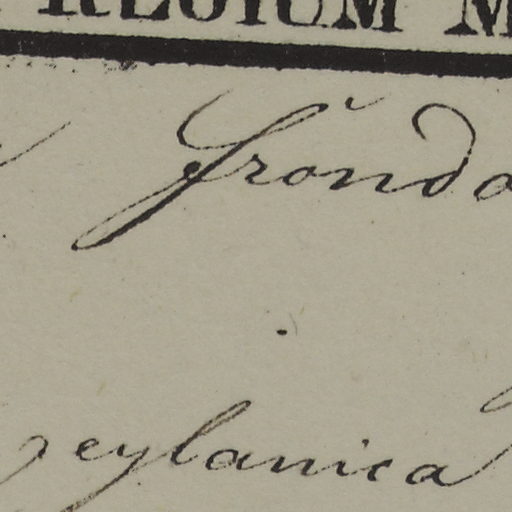 REGIUM M
Frondo
zeylanica